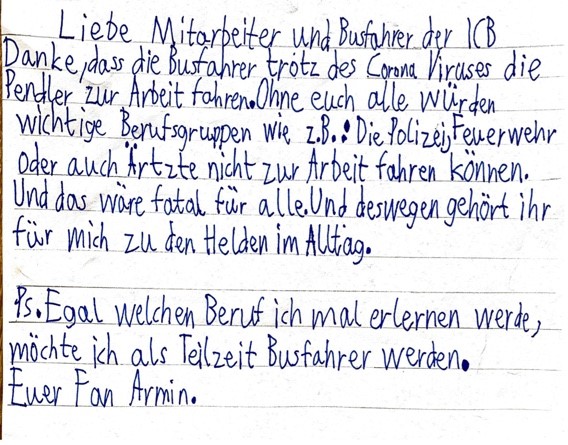 Liebe Mitarbeiter und Busfahrer der ICB
Danke, dass die Busfahrer trotz des Corona Viruses die
Pendler zur Arbeit fahren. Ohne euch alle würden
wichtige Berufsgruppen wie z.B.: Die Polizei, Feuerwehr
oder auch Ärtzte nicht zur Arbeit fahren können.
Und das wäre fatal für alle. Und deswegen gehört ihr
für mich zu den Helden im Alltag.
Ps. Egal welchen Beruf ich mal erlernen werde,
möchte ich als Teilzeit Busfahrer werden.
Euer Fan Armin.